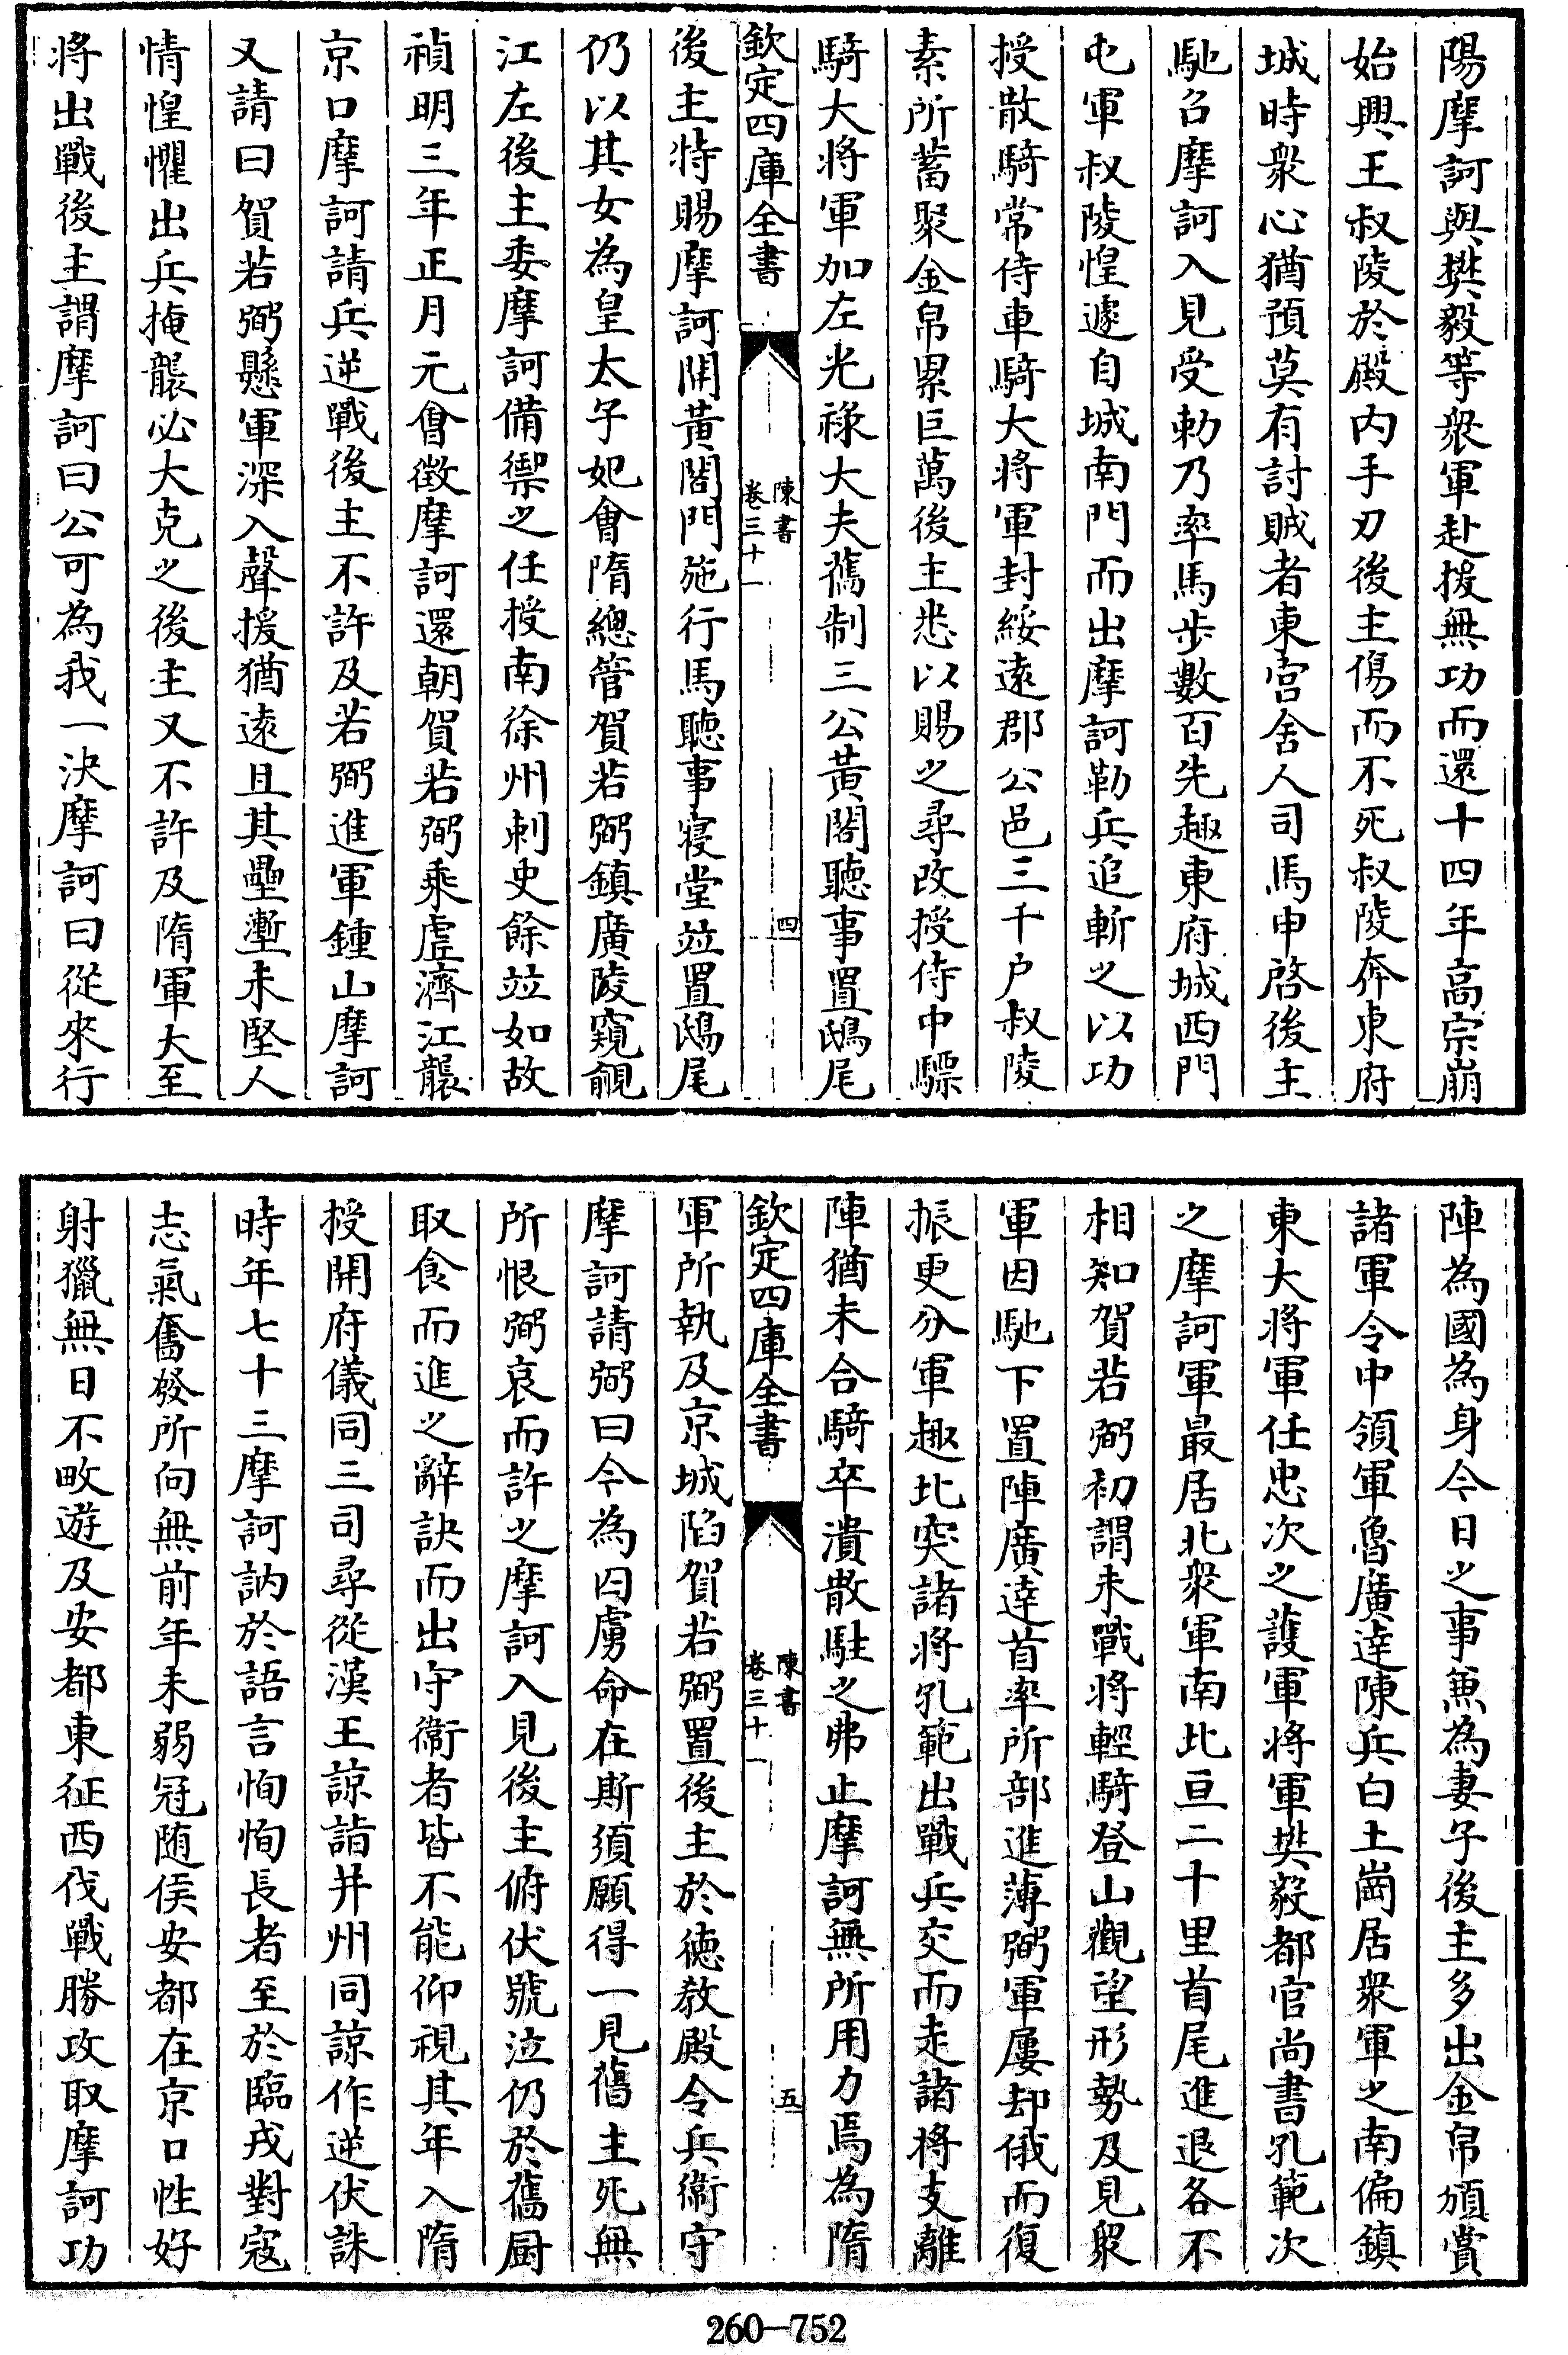 陽摩訶與樊毅等衆軍赴援無功而還十四年高宗崩
始興王叔陵於殿内手刃後主傷而不死叔陵奔東府
城時衆心猶預莫有討賊者東宮舍人司馬申啓後主
馳召摩訶入見受勅乃率馬步數百先趣東府城西門
屯軍叔陵惶遽自城南門而出摩訶勒兵追斬之以功
授散騎常侍車騎大將軍封綏遠郡公邑三千户叔陵
素所蓄聚金帛累巨萬後主悉以賜之尋改授侍中驃
騎大將軍加左光祿大夫舊制三公黃閤聽事置鴟尾
欽定四庫全書
陳書
卷三十一
四
後主特賜摩訶開黃閤門施行馬聽事寢堂竝置鴟尾
仍以其女為皇太子妃會隋總管賀若弼鎮廣陵窺覦
江左後主委摩訶備禦之任授南徐州刺史餘竝如故
禎明三年正月元會徵摩訶還朝賀若弼乘虛濟江襲
京口摩訶請兵逆戰後主不許及若弼進軍鍾山摩訶
又請曰賀若弼懸軍深入聲援猶遠且其壘塹未堅人
情惶懼出兵掩襲必大克之後主又不許及隋軍大至
將出戰後主謂摩訶曰公可為我一決摩訶曰從來行
陣為國為身今日之事兼為妻子後主多出金帛頒賞
諸軍令中領軍魯廣達陳兵白土崗居衆軍之南偏鎮
東大將軍任忠次之護軍將軍樊毅都官尚書孔範次
之摩訶軍最居北衆軍南北亘二十里首尾進退各不
相知賀若弼初謂未戰將輕騎登山觀望形勢及見衆
軍因馳下置陣廣達首率所部進薄弼軍屢却俄而復
振更分軍趣北突諸將孔範出戰兵交而走諸將支離
陣猶未合騎卒潰散駐之弗止摩訶無所用力焉為隋
欽定四庫全書
陳書
卷三十一
五
軍所執及京城陷賀若弼置後主於德教殿令兵衛守
摩訶請弼曰今為囚虜命在斯須願得一見舊主死無
所恨弼哀而許之摩訶入見後主俯伏號泣仍於舊厨
取食而進之辭訣而出守衛者皆不能仰視其年入隋
授開府儀同三司尋從漢王諒詣并州同諒作逆伏誅
時年七十三摩訶訥於語言恂恂長者至於臨戎對寇
志氣奮發所向無前年未弱冠随侯安都在京口性好
射獵無日不畋遊及安都東征西伐戰勝攻取摩訶功
260—752